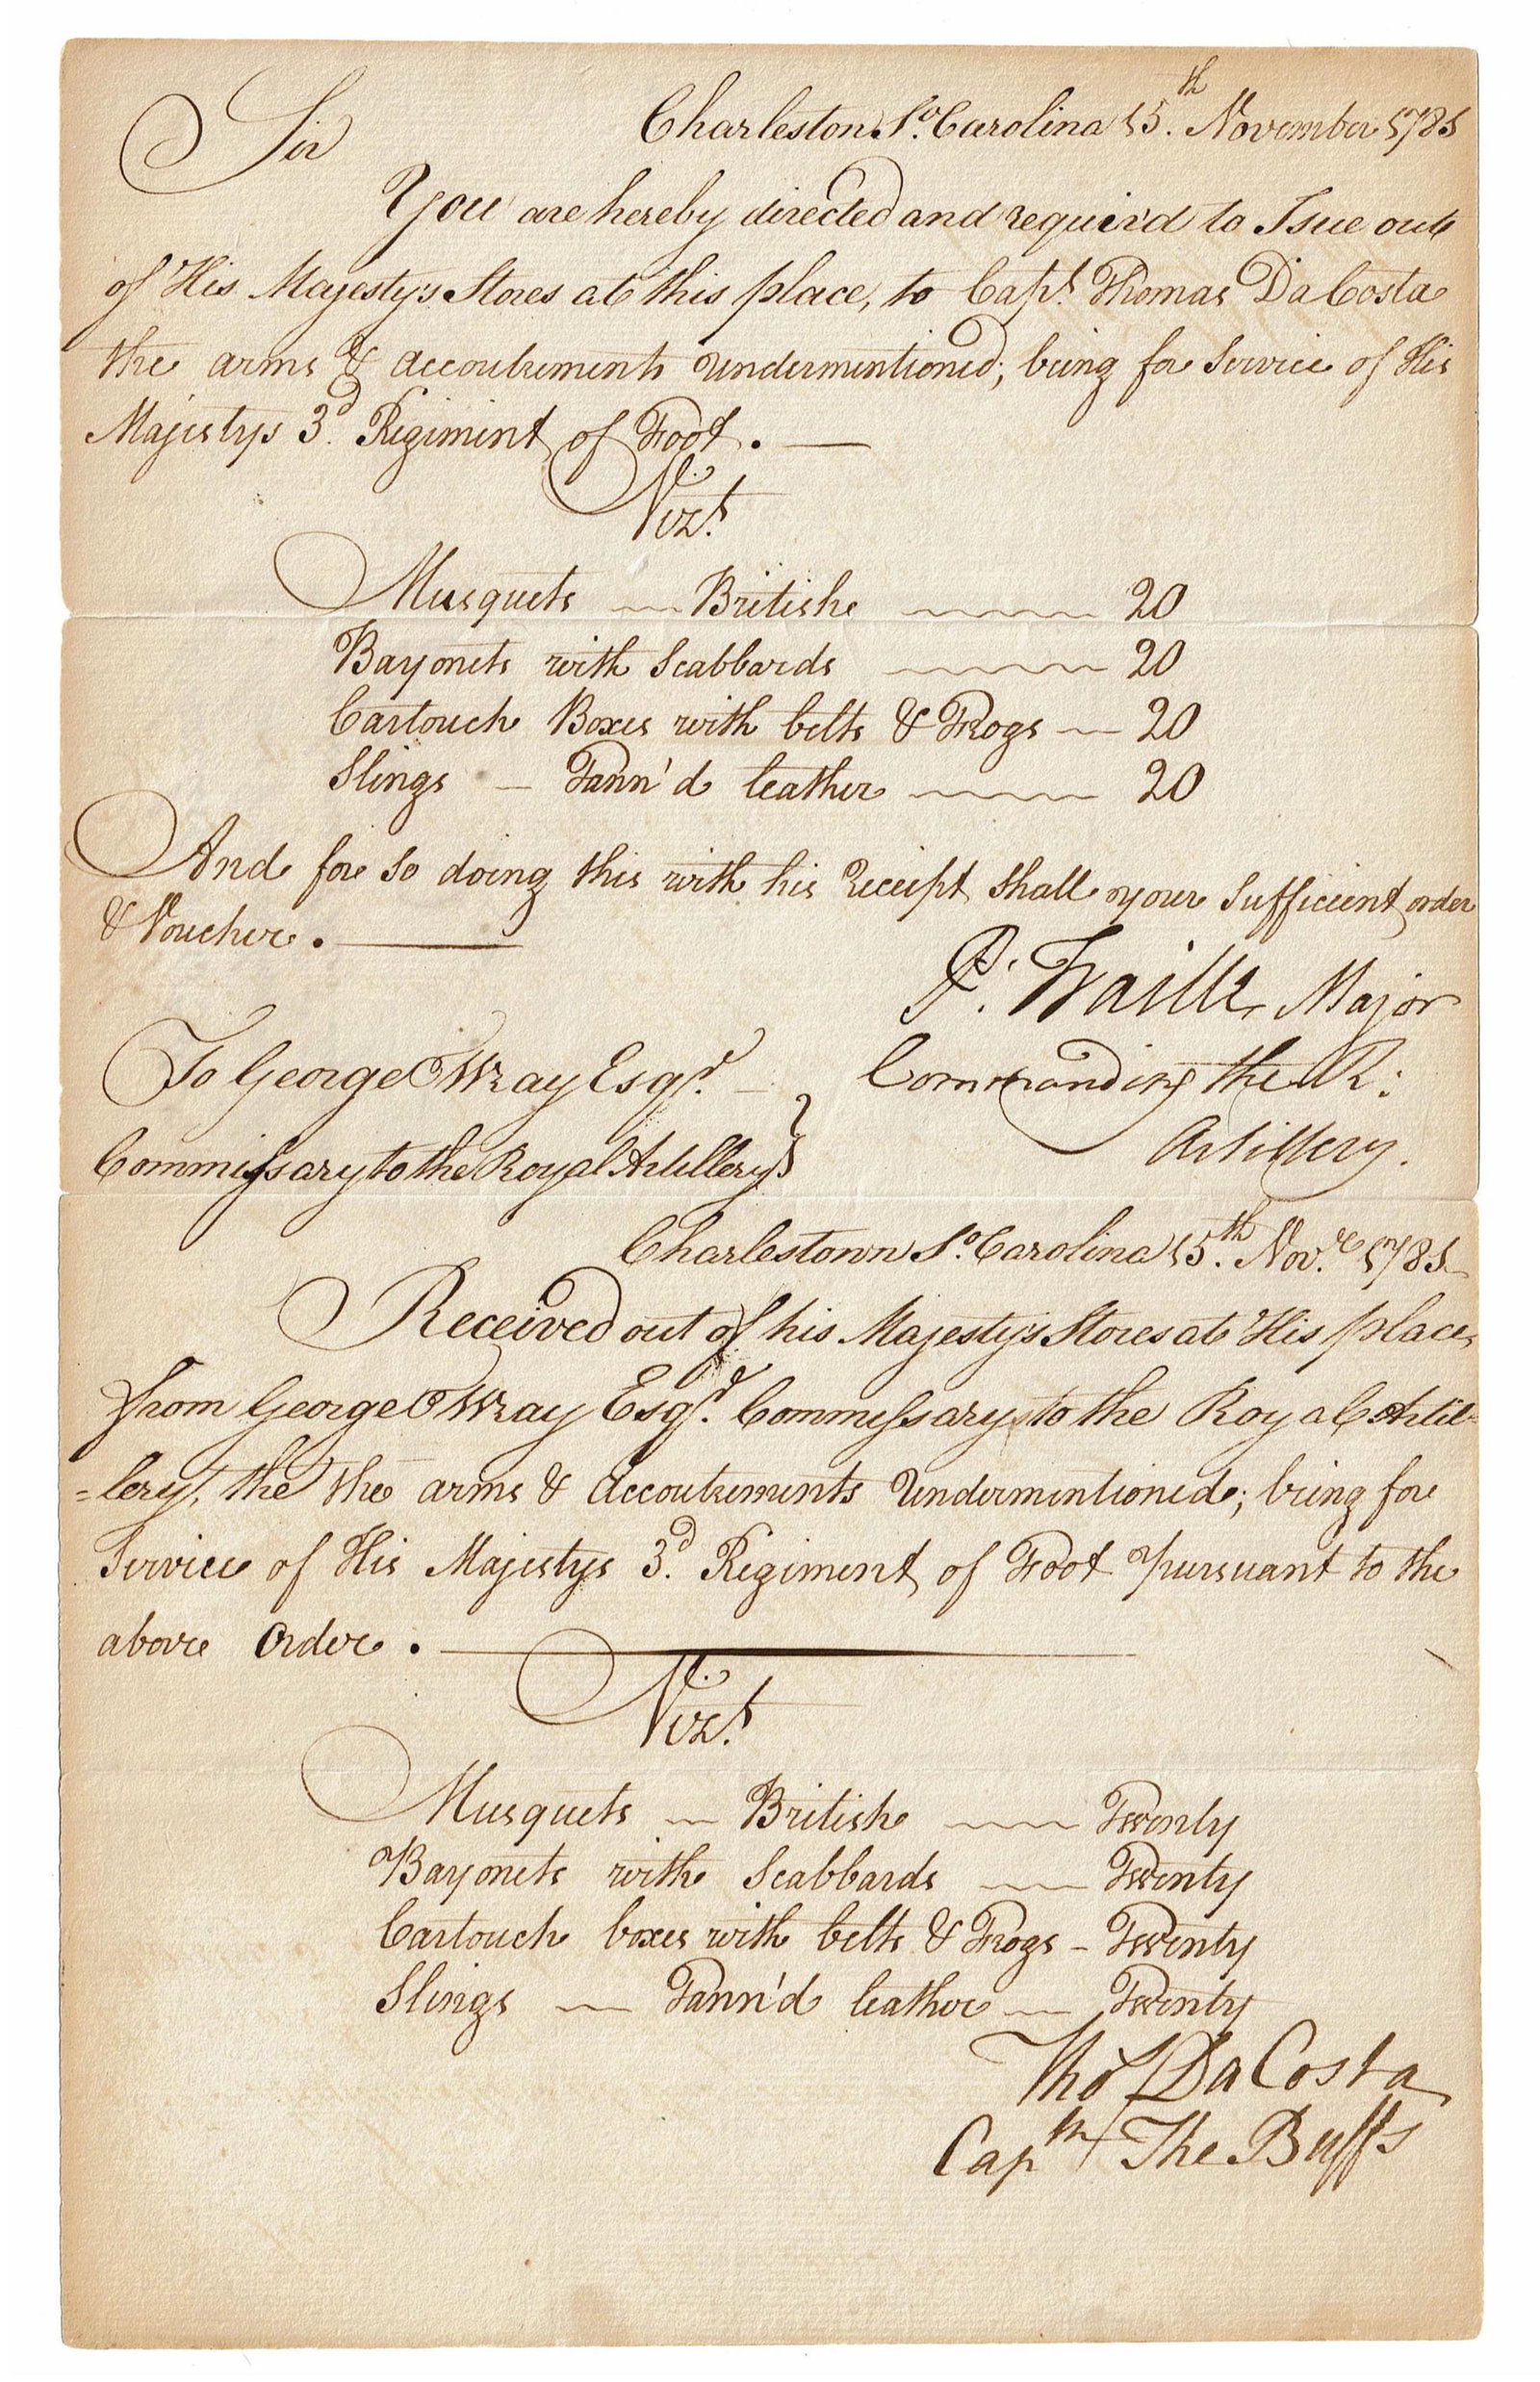 Sir
Charleston So. Carolina 15th. November 1781
You are hereby directed and requir'd to Isue out
of His Majesty's Stores at this place, to Capt. Thomas DaCosta
the arms & accoutrements undermentioned; being for Service of His
Majestys 3d. Regiment of Foot. —
Vizt.
Musquets — British — 20
Bayonets with Scabbards — 20
Cartouch Boxes with belts & Frogs — 20
Slings — Tann'd leather — 20
And for So doing this with his Receipt Shall your Sufficient order
& Voucher. —
P. Traille, Major
Commanding the R:
Artillery.
To George Wray Esqr. —
Commissary to the Royal Artillery }
Charlestown So. Carolina 15th. Nov.r 1781
Received out of his Majesty's Stores at His place,
from George Wray Esqr. Commessary to the Royal Artil-
=lery, the the arms & Accoutrements Undermentioned; being for
Service of His Majestys 3d. Regiment of Foot pursuant to the
above Order. —
Vizt.
Musquets — British — Twenty
Bayonets with Scabbards — Twenty
Cartouch boxes with belts & Frogs - Twenty
Slings — Tann'd leather — Twenty
Tho's DaCosta
Captn The Buffs